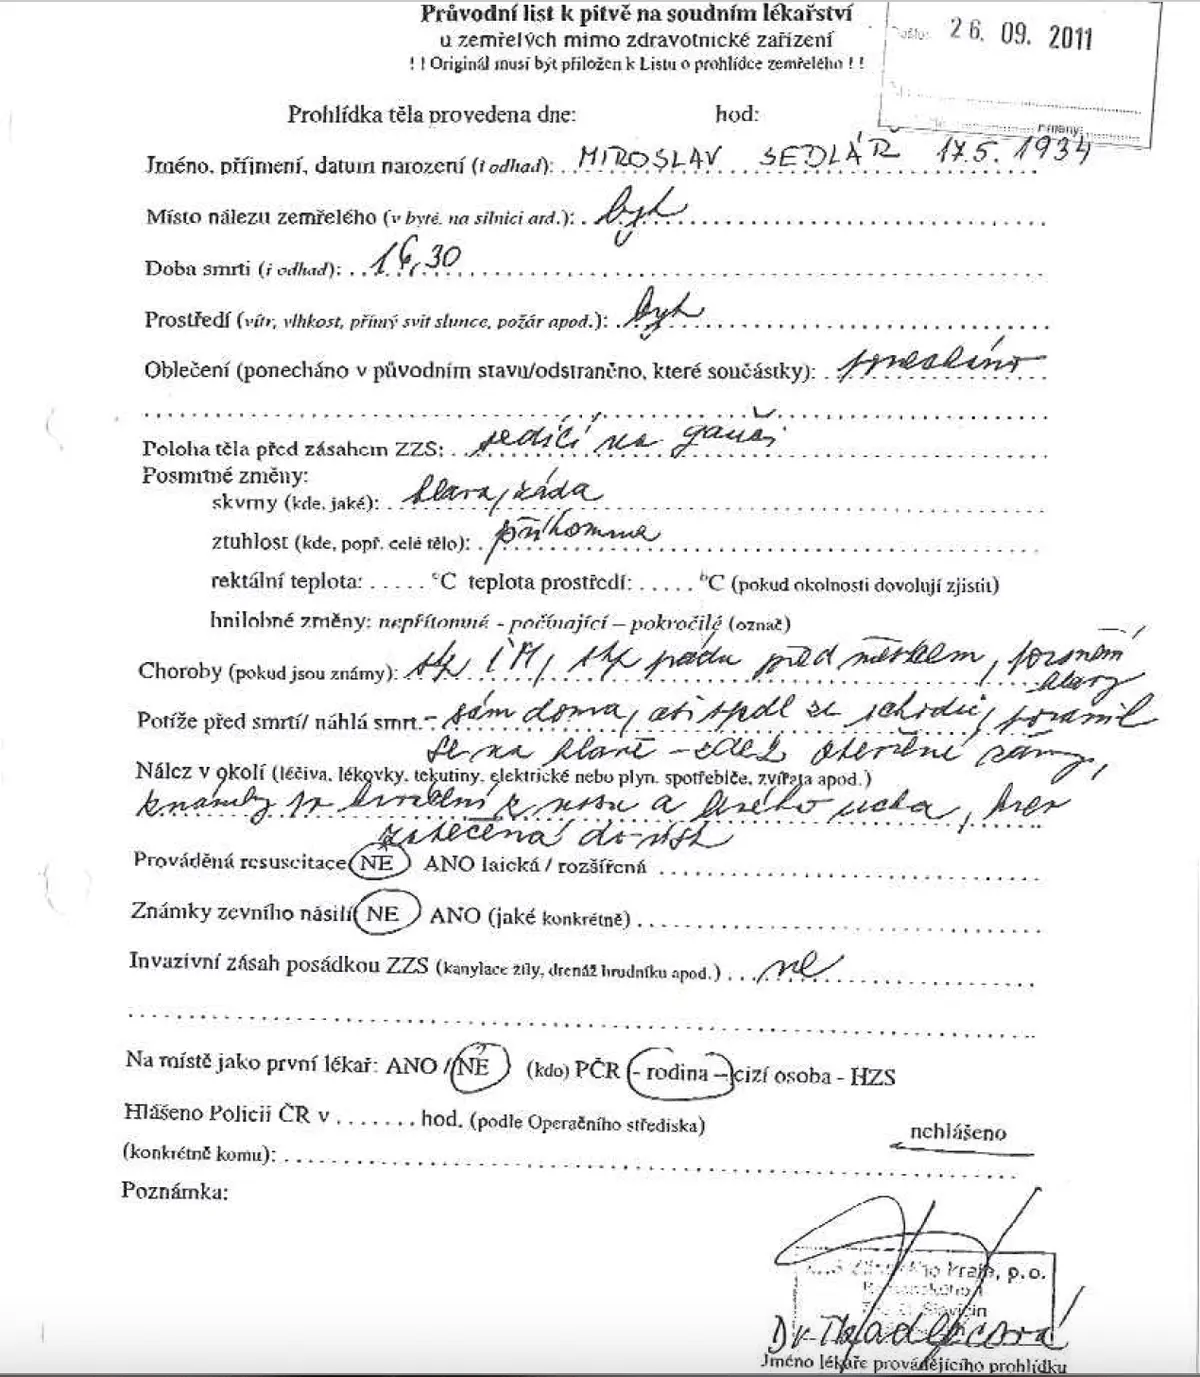 Průvodní list k pitvě na soudním lékařství
u zemřelých mimo zdravotnické zařízení
! ! Originál musí být přiložen k Listu o prohlídce zemřelého ! !
Došlo: 26. 09. 2011
Prohlídka těla provedena dne: hod:
Jméno, příjmení, datum narození (i odhad): MIROSLAV SEDLÁŘ 17.5. 1934
Místo nálezu zemřelého (v bytě, na silnici atd.): byt
Doba smrti (i odhad): 16,30
Prostředí (vítr, vlhkost, přímý svit slunce, požár apod.): byt
Oblečení (ponecháno v původním stavu/odstraněno, které součástky): ponecháno
Poloha těla před zásahem ZZS: sedící na gauči
Posmrtné změny:
skvrny (kde, jaké): hlava, záda
ztuhlost (kde, popř. celé tělo): přítomna
rektální teplota: ..... °C teplota prostředí: ..... °C (pokud okolnosti dovolují zjistit)
hnilobné změny: nepřítomné - počínající – pokročilé (označ)
Choroby (pokud jsou známy): stp IM, stp pádu před měsícem, poranění
hlavy
Potíže před smrtí/ náhlá smrt - sám doma, asi spdl ze schodů, poranil
se na hlavě - zde 2 otevřené rány,
Nález v okolí (léčiva, lékovky, tekutiny, elektrické nebo plyn. spotřebiče, zvířata apod.)
známky po krvácení z nosu a levého ucha, krev
zatečená do úst
Prováděná resuscitace NE ANO laická / rozšířená
Známky zevního násilí NE ANO (jaké konkrétně)
Invazivní zásah posádkou ZZS (kanylace žíly, drenáž hrudníku apod.) ne
Na místě jako první lékař: ANO / NE (kdo) PČR - rodina – cizí osoba - HZS
Hlášeno Policii ČR v ....... hod. (podle Operačního střediska)
nehlášeno
(konkrétně komu):
Poznámka:
Zlínského kraje, p.o.
Slavičín
Jméno lékaře provádějícího prohlídku